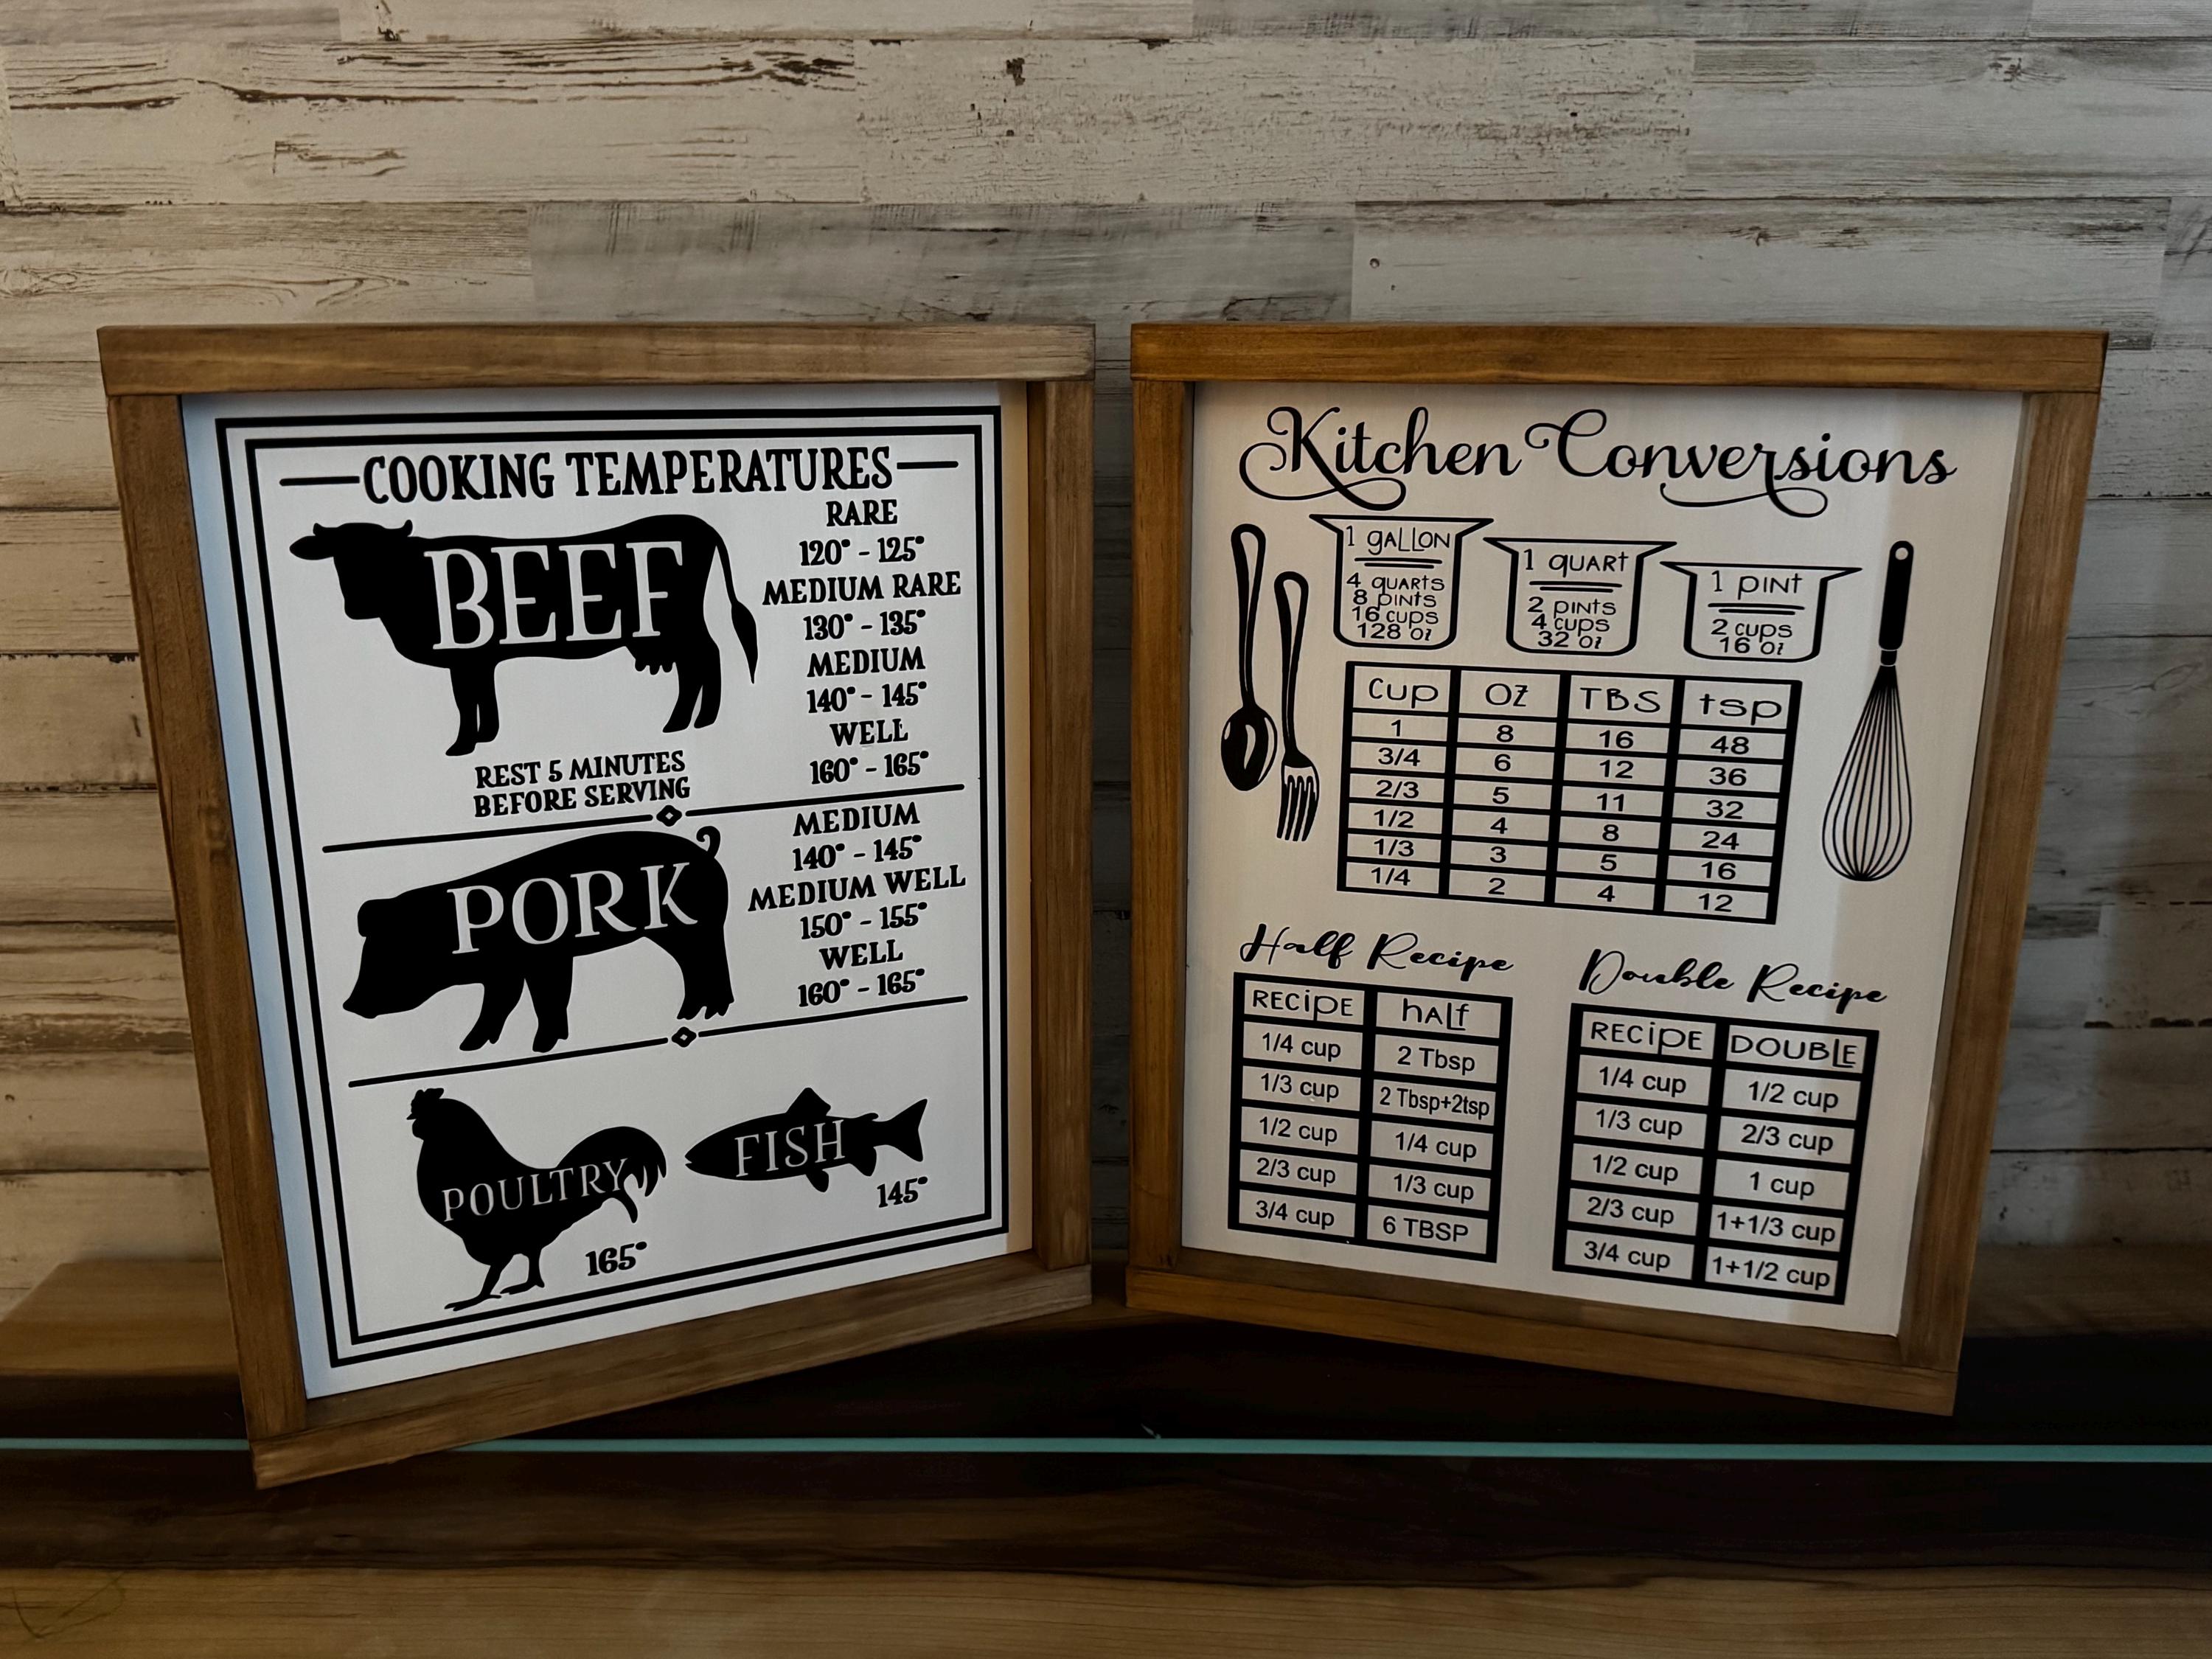 COOKING TEMPERATURES
BEEF
RARE
120° - 125°
MEDIUM RARE
130° - 135°
MEDIUM
140° - 145°
WELL
160° - 165°
REST 5 MINUTES
BEFORE SERVING
PORK
MEDIUM
140° - 145°
MEDIUM WELL
150° - 155°
WELL
160° - 165°
POULTRY
165°
FISH
145°
Kitchen Conversions
1 gALLON
4 quarts
8 pints
16 cups
128 oz
1 quart
2 pints
4 cups
32 oz
1 pint
2 cups
16 oz
cup OZ TBS tsp
1 8 16 48
3/4 6 12 36
2/3 5 11 32
1/2 4 8 24
1/3 3 5 16
1/4 2 4 12
Half Recipe
RECipE hALf
1/4 cup 2 Tbsp
1/3 cup 2 Tbsp+2tsp
1/2 cup 1/4 cup
2/3 cup 1/3 cup
3/4 cup 6 TBSP
Double Recipe
RECipE DOUBLE
1/4 cup 1/2 cup
1/3 cup 2/3 cup
1/2 cup 1 cup
2/3 cup 1+1/3 cup
3/4 cup 1+1/2 cup